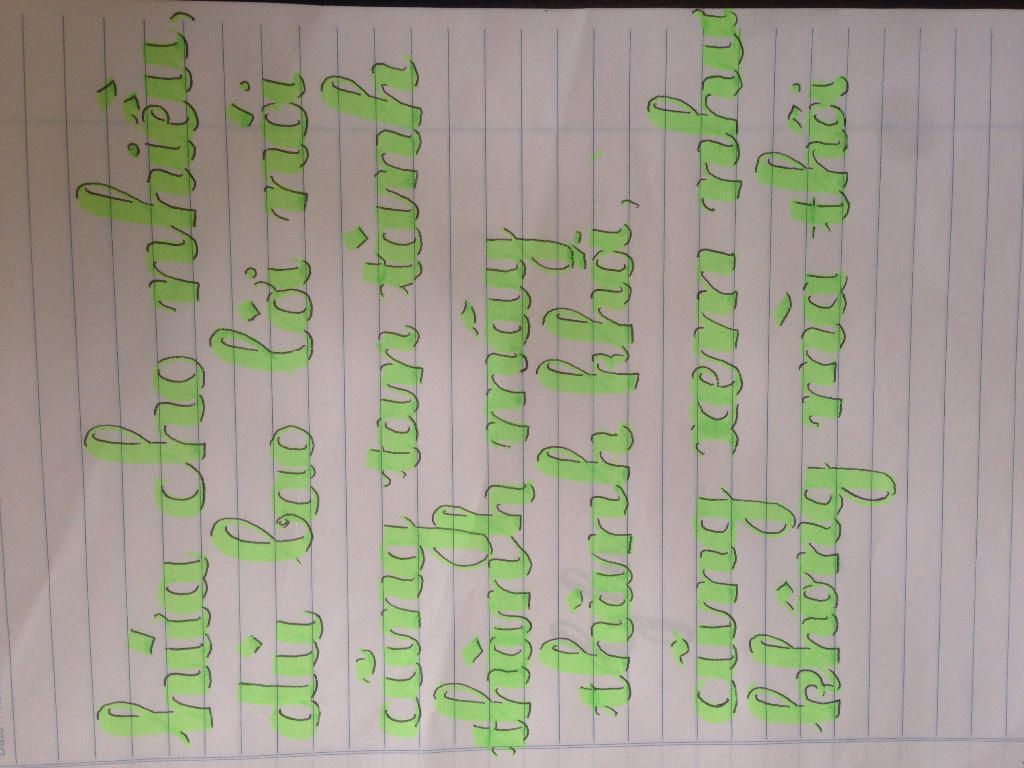 hứa cho nhiều,
dù bao lời nói
cũng tan tành
thành mây
thành khói,
cũng xem như
không mà thôi